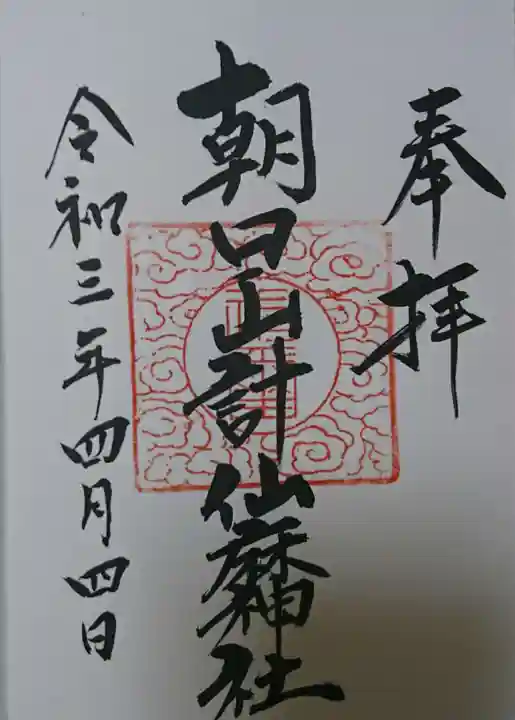 奉拝
朝日山計仙麻神社
令和三年四月四日